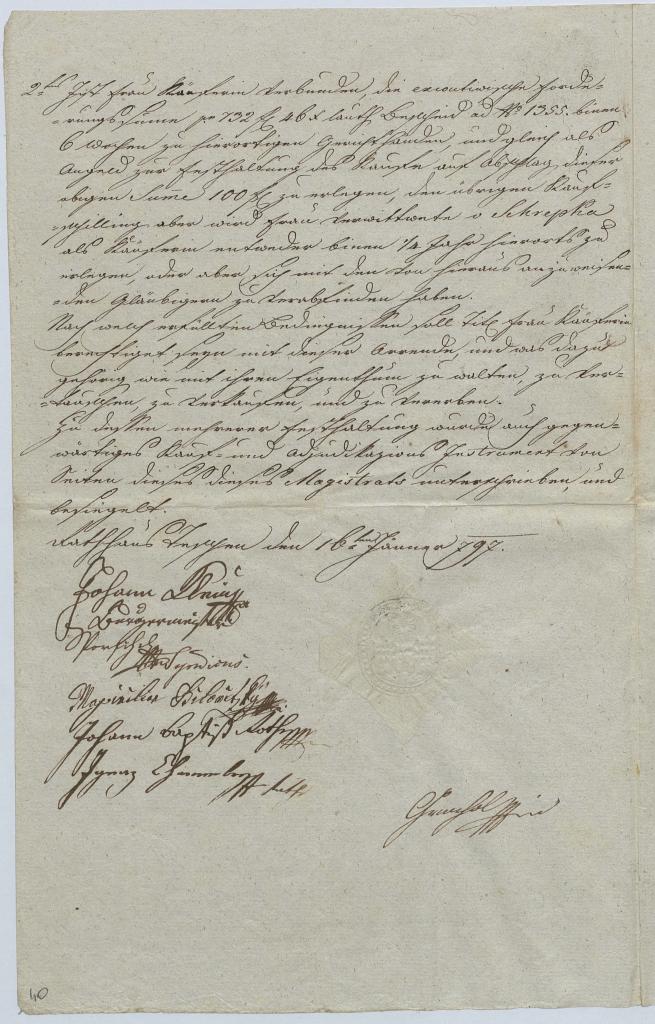 2tens Ist Frau Käuferin verbunden, die executivische Forde-
-rungs Summe pr 732 f 46 x lauth Bescheid ad No 1355. binen
6 Wochen zu hierortigen Gerichtshanden, und gleich als
Angeld zur Festhaltung des Kaufs auf Abschlag dieser
obigen Summe 100 f zu erlegen, den übrigen Kauf-
-schilling aber wird Frau verwittwete v Schrepka
als Käuferin entweder binen 1/4 Jahr hierorts zu
erlegen, oder aber sich mit den von hieraus anzuweisen-
-den Gläubigern zu verabfinden haben.
Nach welch erfüllten Bedingnissen soll Titl Frau Käuferin
berechtiget seyn mit dieser Arrende, und was dazu
gehörig wie mit ihren Eigenthum zu walten, zu ver-
-tauschen, zu verkaufen, und zu vererben.
Zu dessen mehrerer Festhaltung wurde auch gegen-
wärtiges Kauf- und Adjudikazions Instrument von
Seiten dieses dieses Magistrats unterschrieben, und
besiegelt.
Rathhaus Teschen den 16ten Jänner 797.
Johann
Burgermeister
Syndicus.
Johann Baptist
Ignaz
40